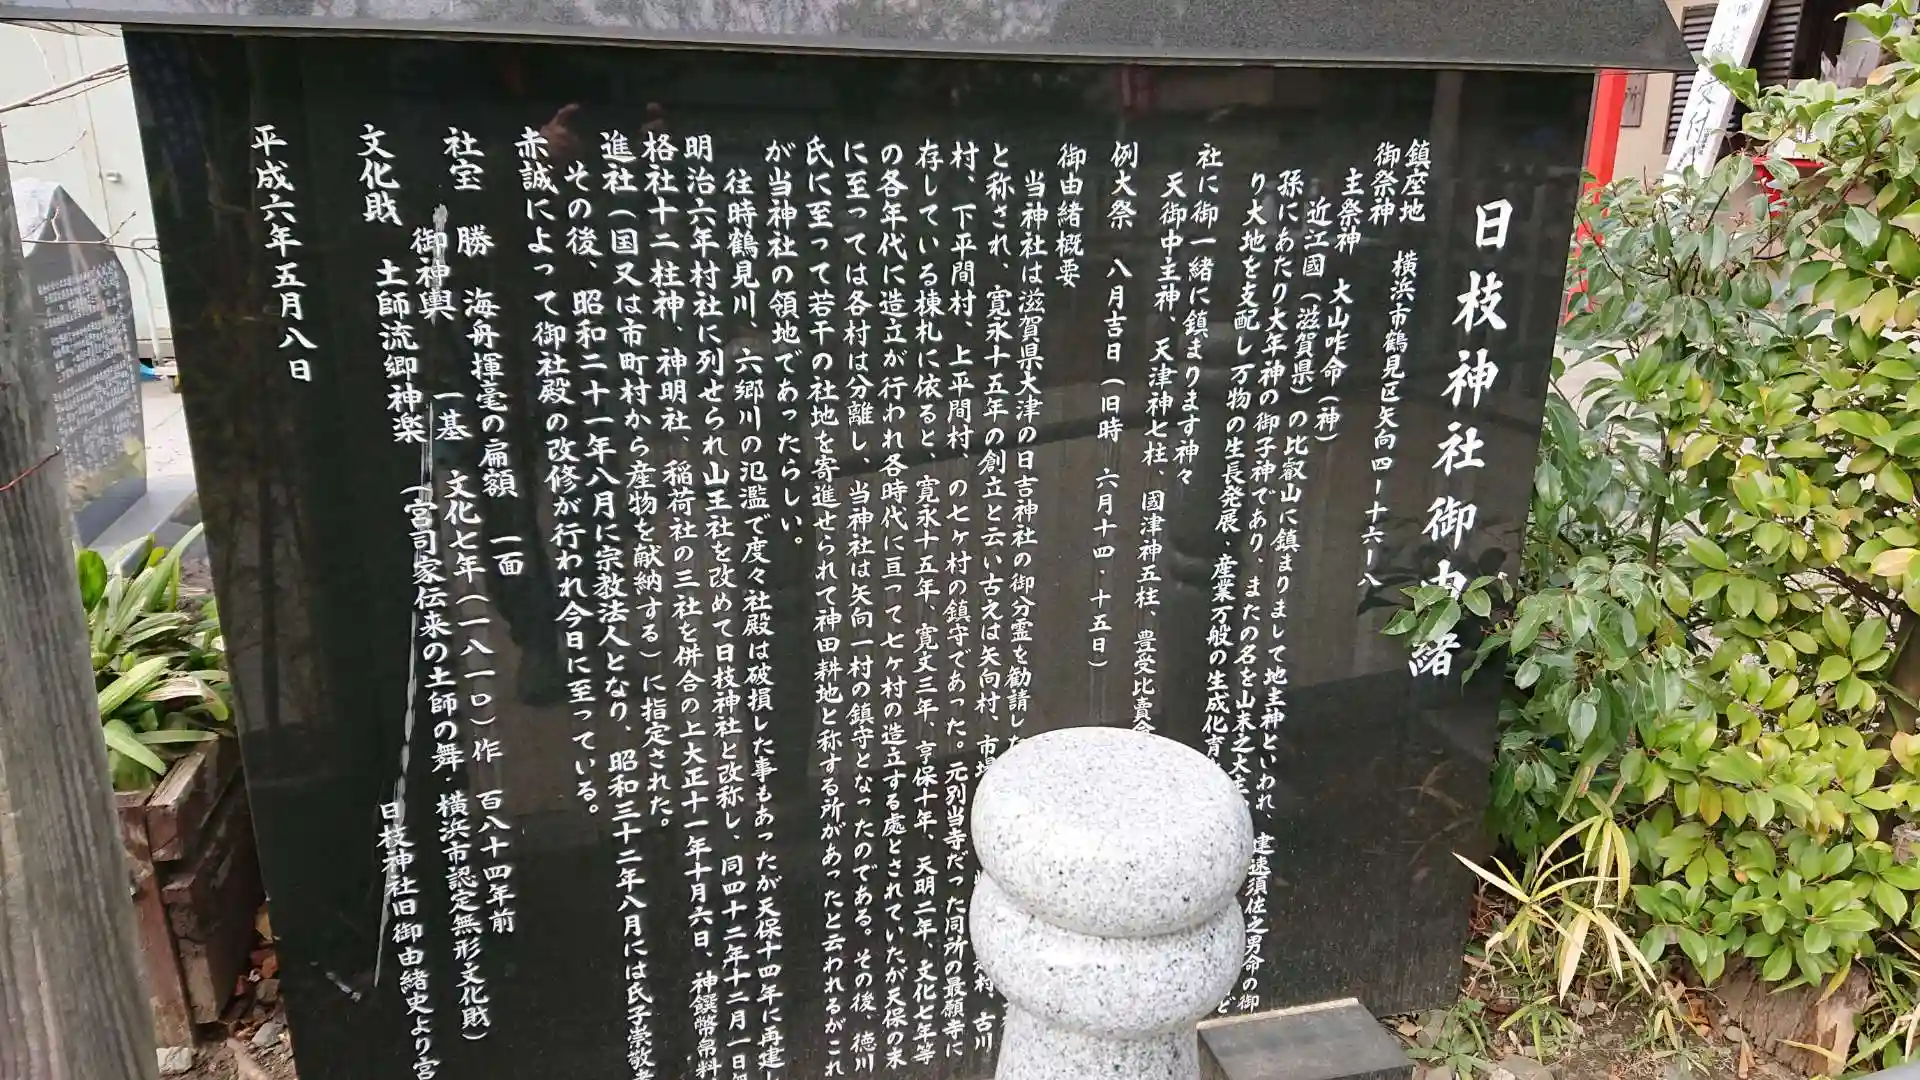 日枝神社御由緒
鎮座地 横浜市鶴見区矢向四ー十六ー八
御祭神
主祭神 大山咋命(神)
近江國(滋賀県)の比叡山に鎮まりまして地主神といわれ、建速須佐之男命の御
孫にあたり大年神の御子神であり、またの名を山末之大主
り大地を支配し万物の生長発展、産業万般の生成化育
社に御一緒に鎮まります神々
天御中主神、天津神七柱、國津神五柱、豊受比賣命
例大祭 八月吉日(旧時 六月十四、十五日)
御由緒概要
当神社は滋賀県大津の日吉神社の御分霊を勧請した
と称され、寛永十五年の創立と云い古えは矢向村、市場
村、古川
村、下平間村、上平間村、の七ヶ村の鎮守であった。元別当寺だった同所の最願寺に
存している棟札に依ると、寛永十五年、寛文三年、享保十年、天明二年、文化七年等
の各年代に造立が行われ各時代に亘って七ヶ村の造立する處とされていたが天保の末
に至っては各村は分離し、当神社は矢向一村の鎮守となったのである。その後、徳川
氏に至って若干の社地を寄進せられて神田耕地と称する所があったと云われるがこれ
が当神社の領地であったらしい。
往時鶴見川、六郷川の氾濫で度々社殿は破損した事もあったが天保十四年に再建し
明治六年村社に列せられ山王社を改めて日枝神社と改称し、同四十二年十二月一日無
格社十二柱神、神明社、稲荷社の三社を併合の上大正十一年十月六日、神饌幣帛料
進社(国又は市町村から産物を献納する)に指定された。
その後、昭和二十一年八月に宗教法人となり、昭和三十二年八月には氏子崇敬者
赤誠によって御社殿の改修が行われ今日に至っている。
社宝 勝 海舟揮毫の扁額 一面
御神輿 一基 文化七年(一八一〇)作 百八十四年前
文化財 土師流郷神楽 (宮司家伝来の土師の舞、横浜市認定無形文化財)
日枝神社旧御由緒史より宮
平成六年五月八日